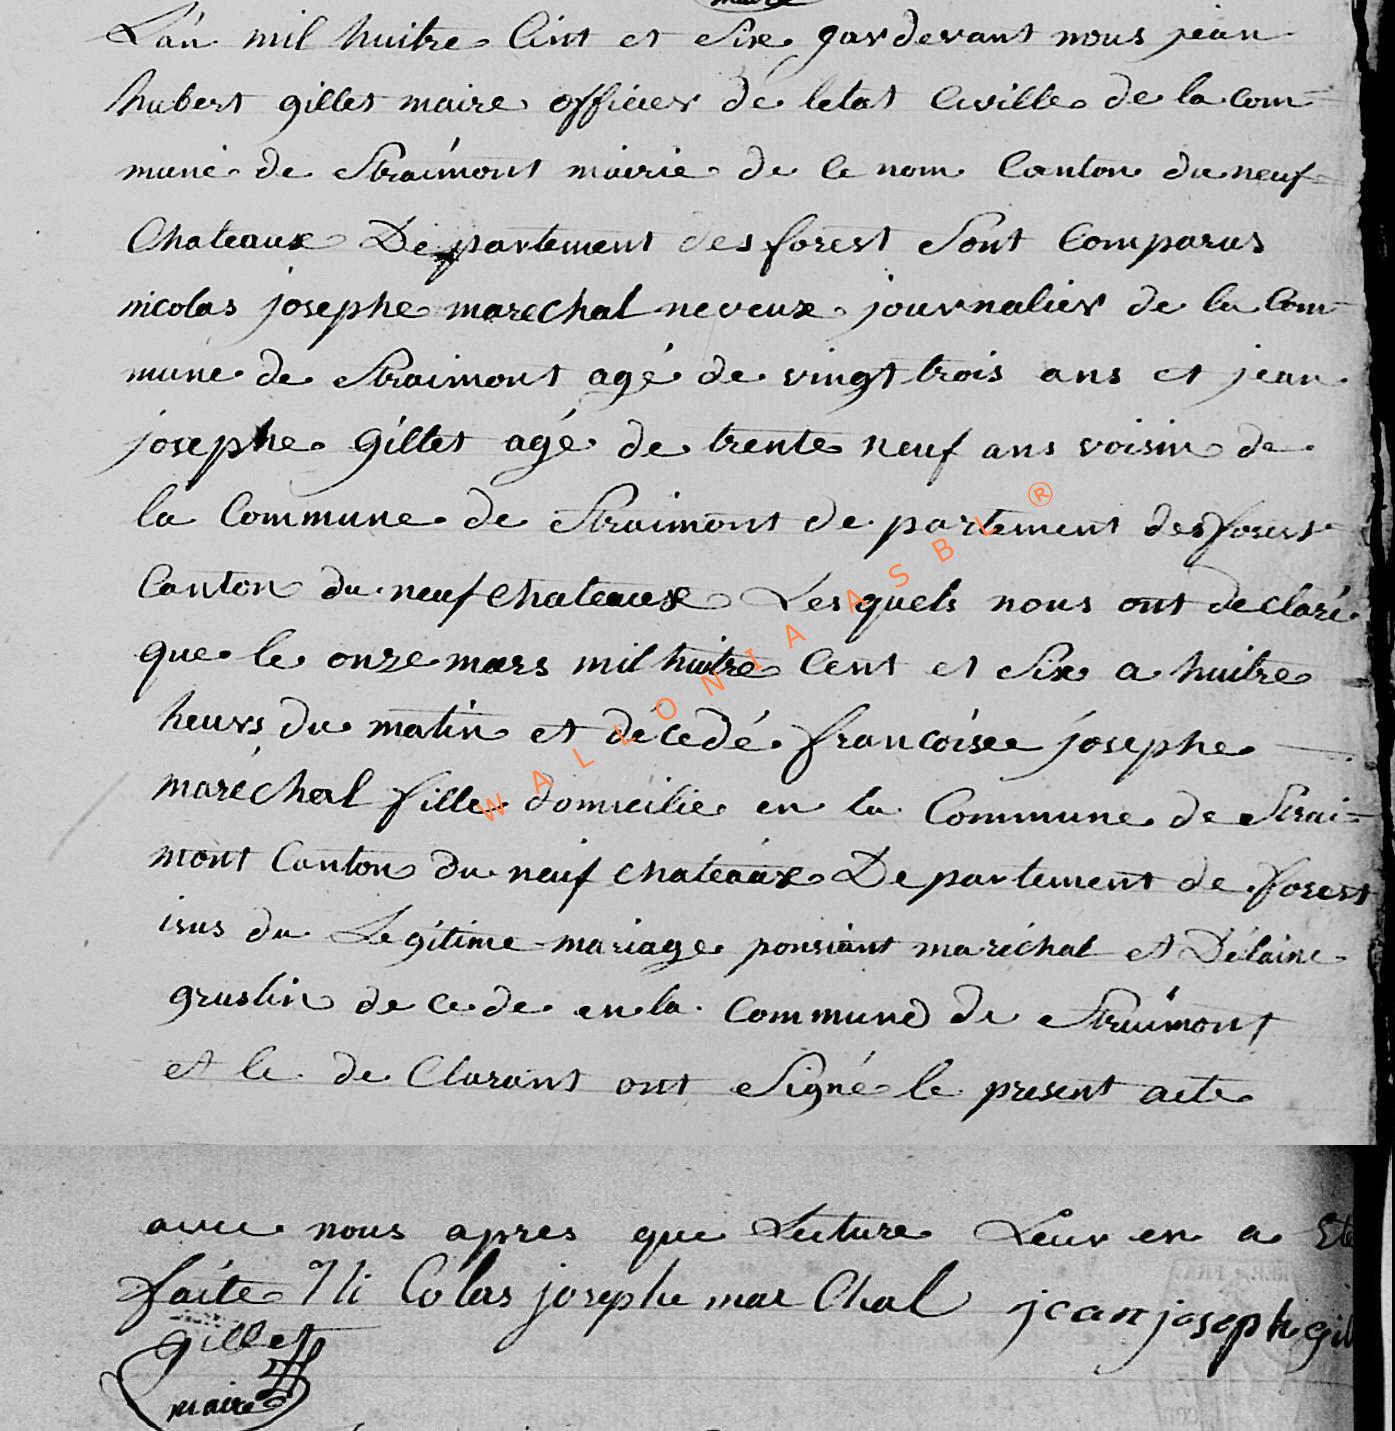 maire
L'an mil huitre Cint et Six pardevant nous jean
hubert gillet maire officier de letat Civille de la Com=
mune de Straimont mairie de Ce nom Canton du neuf=
Chateaux Departement des forest Sont Comparus
nicolas josephe marechal neveux journalier de la Com=
mune de Straimont agé de vingt trois ans et jean
josephe Gillet agé de trente neuf ans voisin de
la Commune de Straimont de partement des forest
Canton du neuf chateaux Les quels nous ont declaré
que le onze mars mil huitre Cent et Six a huitre
heurs du matin et décedé francoisee josephe
maréchal fille domicilie en la Commune de Strai=
mont Canton du neuf chateaux Departement de forest
isus du Legitime mariage ponsiant maréchal et Délaine
grustin de ce de en la Commune de Straimont
et le de Clarant ont Signé le present acte
WALLONIA ASBL ®
avec nous apres que Lecture Leur en a Eté
faite Ni Colas josephe mar Chal jean joseph gil
gillet
maire